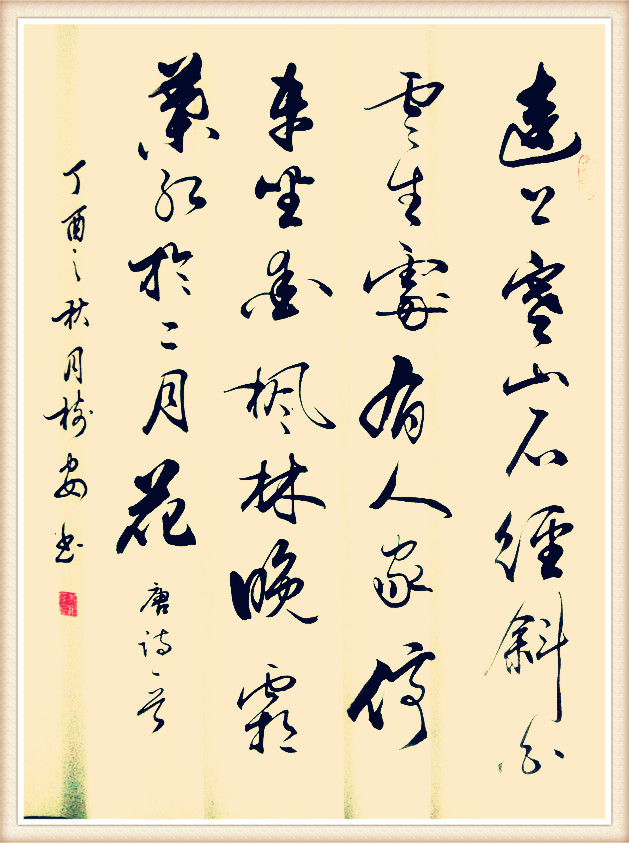 遠上寒山石經斜白
雲生處有人家停
車坐愛楓林晚霜
葉紅於二月花 唐詩一首
丁酉之秋月樹安书